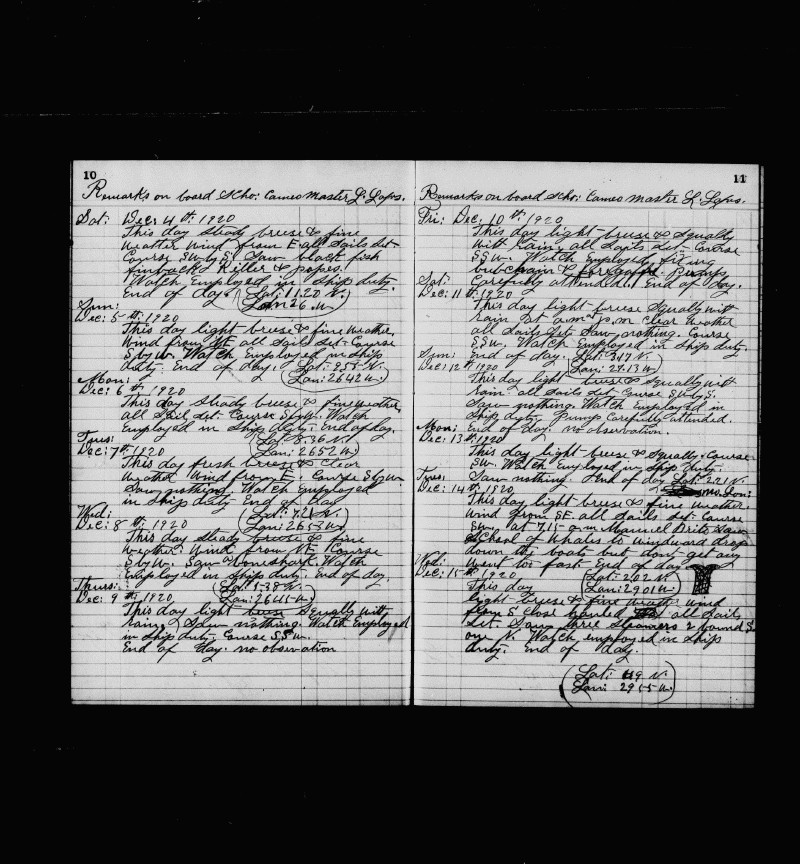 10
Remarks on board Scho: Cameo Master J. Lopes.
Sat: Dec: 4th 1920
This day steady breeze & fine
weather wind from E all sails set
Course SW by S. Saw black fish
finbacks Killer &
Watch Employed in ship duty.
End of day. (Lat: 11.20 N.
Lon: 26 W.)
Sun:
Dec: 5th 1920
This day light breeze & fine weather
wind from NE all sails set Course
S by W. Watch Employed in ship
duty. End of day. (Lat: 9.55 N.
Lon: 26 42 W.)
Mon:
Dec: 6th 1920
This day steady breeze & fine weather
all sail set Course S by W. Watch
Employed in ship duty. End of day.
Tues: (Lat: 8.36 N.
Dec: 7th 1920 Lon: 26 52 W.)
This day fresh breeze & clear
weather wind from E. Course S by W
Saw nothing Watch Employed
in ship duty End of day
Wed: (Lat: 7.21 N.
Dec: 8th 1920 Lon: 26 53 W.)
This day steady breeze & fine
weather. Wind from NE Course
S by W. Saw boneshark. Watch
Employed in ship duty. End of day.
Thurs: (Lat: 5 38 N.
Dec: 9th 1920 Lon: 26 45 W.)
This day light breeze Squally with
rain, Saw nothing. Watch Employed
in ship duty. Course S.S W.
End of day. no observation
11
Remarks on board Scho: Cameo Master J. Lopes.
Fri: Dec. 10th 1920
This day light breeze & Squally
with rain, all sails set Course
SSW. Watch Employed fiting
bobchain & Pumps
Sat: Carefully attended. End of day.
Dec: 11th 1920
This day light breeze Squally with
rain at a.m. p.m. clear weather
all sails set Saw nothing. Course
SSW. Watch Employed in ship duty.
Sun: End of day. (Lat: 3 47 N.
Dec: 12th 1920 Lon: 29.13 W.)
This day light breeze & Squally with
rain all sails set Course SW by S.
Saw nothing. Watch Employed in
ship duty. Pumps Carefully attended.
Mon: End of day. no observation.
Dec. 13th 1920
This day light breeze & Squally. Course
SW. Watch Employed in ship duty.
Tues: Saw nothing. End of day Lat: 2.21 N.
Dec: 14th 1920 no Lon:
This day light breeze & fine weather
wind from SE all sails set: Course
SW. at 7.15 a.m. Manuel Brito Saw
School of whales to windward drop
down the boats but dont get any
Wed: went too fast End of day
Dec: 15th 1920 (Lat: 2.02 N.
This day Lon: 29 01 W.)
light breeze & fine weather wind
from S close hauled all sails
set. Saw three Steamers 2 bound S.
one N. Watch employed in ship
duty. End of day.
(Lat: 1 19 N.
Lon: 29 55 W.)